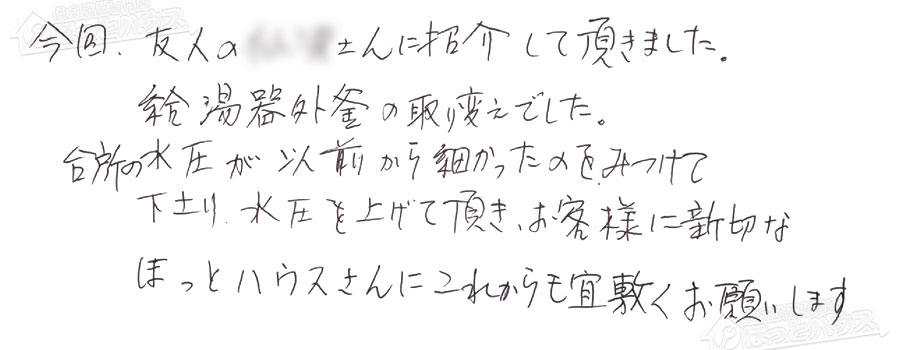 今回、友人の さんに紹介して頂きました。
給湯器外釜の取り変えでした。
台所の水圧が以前から細かったのをみつけて
下土り、水圧を上げて頂き、お客様に新切な
ほっとハウスさんにこれからも宜敷くお願いします